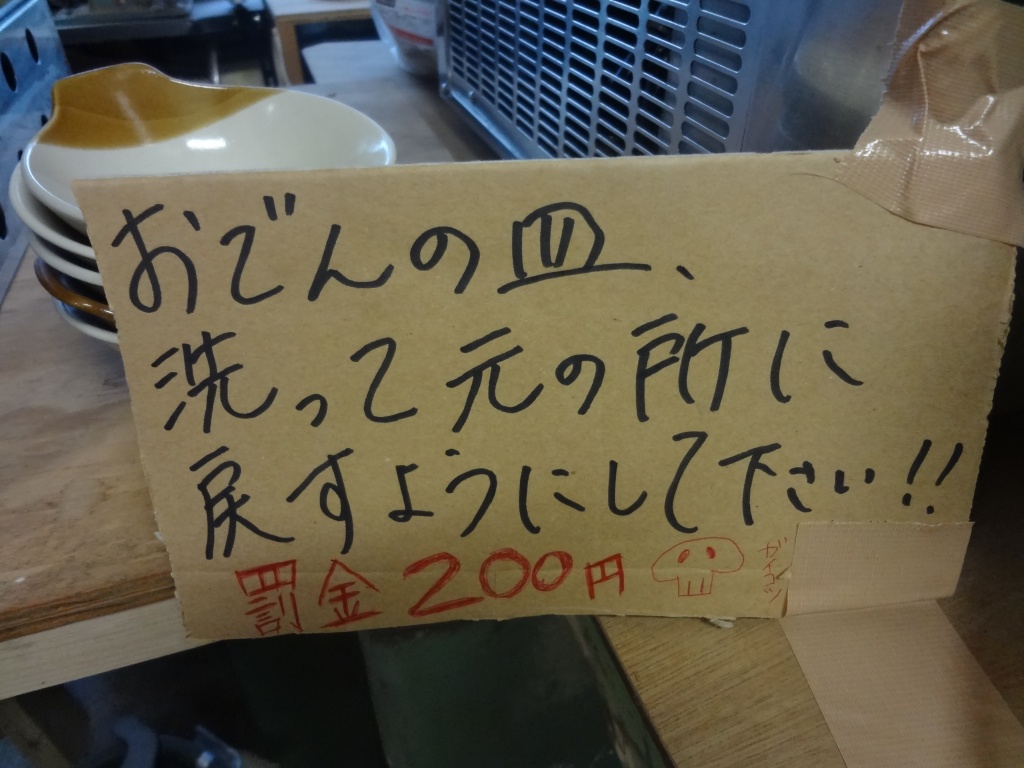 おでんの皿、
洗って元の所に
戻すようにして下さい!!
罰金200円
ガイコツ